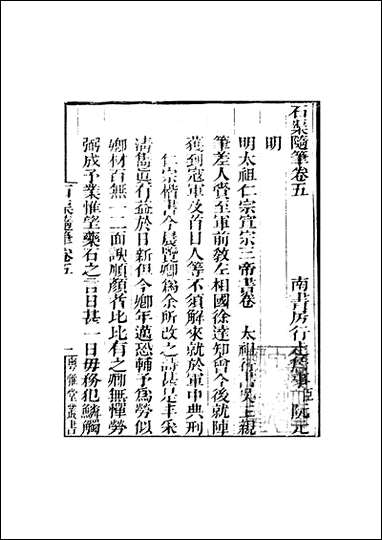 石渠隨筆卷五
南書房行走詹事臣阮元
明
明太祖仁宗宣宗三帝書卷 太祖行書吳王親
筆差人賫至軍前教左相國徐達知會今後就陣
獲到寇軍及首目人等不須解來就於軍中典刑
仁宗楷書今晨覽卿爲余所改之詩甚是丰采
清雋眞有益於日新但今卿年邁恐輔予爲勞似
卿材百無一二面諛順顏者比比有之卿無憚勞
弼成予業惟望藥石之言日甚一日毋務犯鱗觸
石渠隨筆卷五
一
粵雅堂叢書